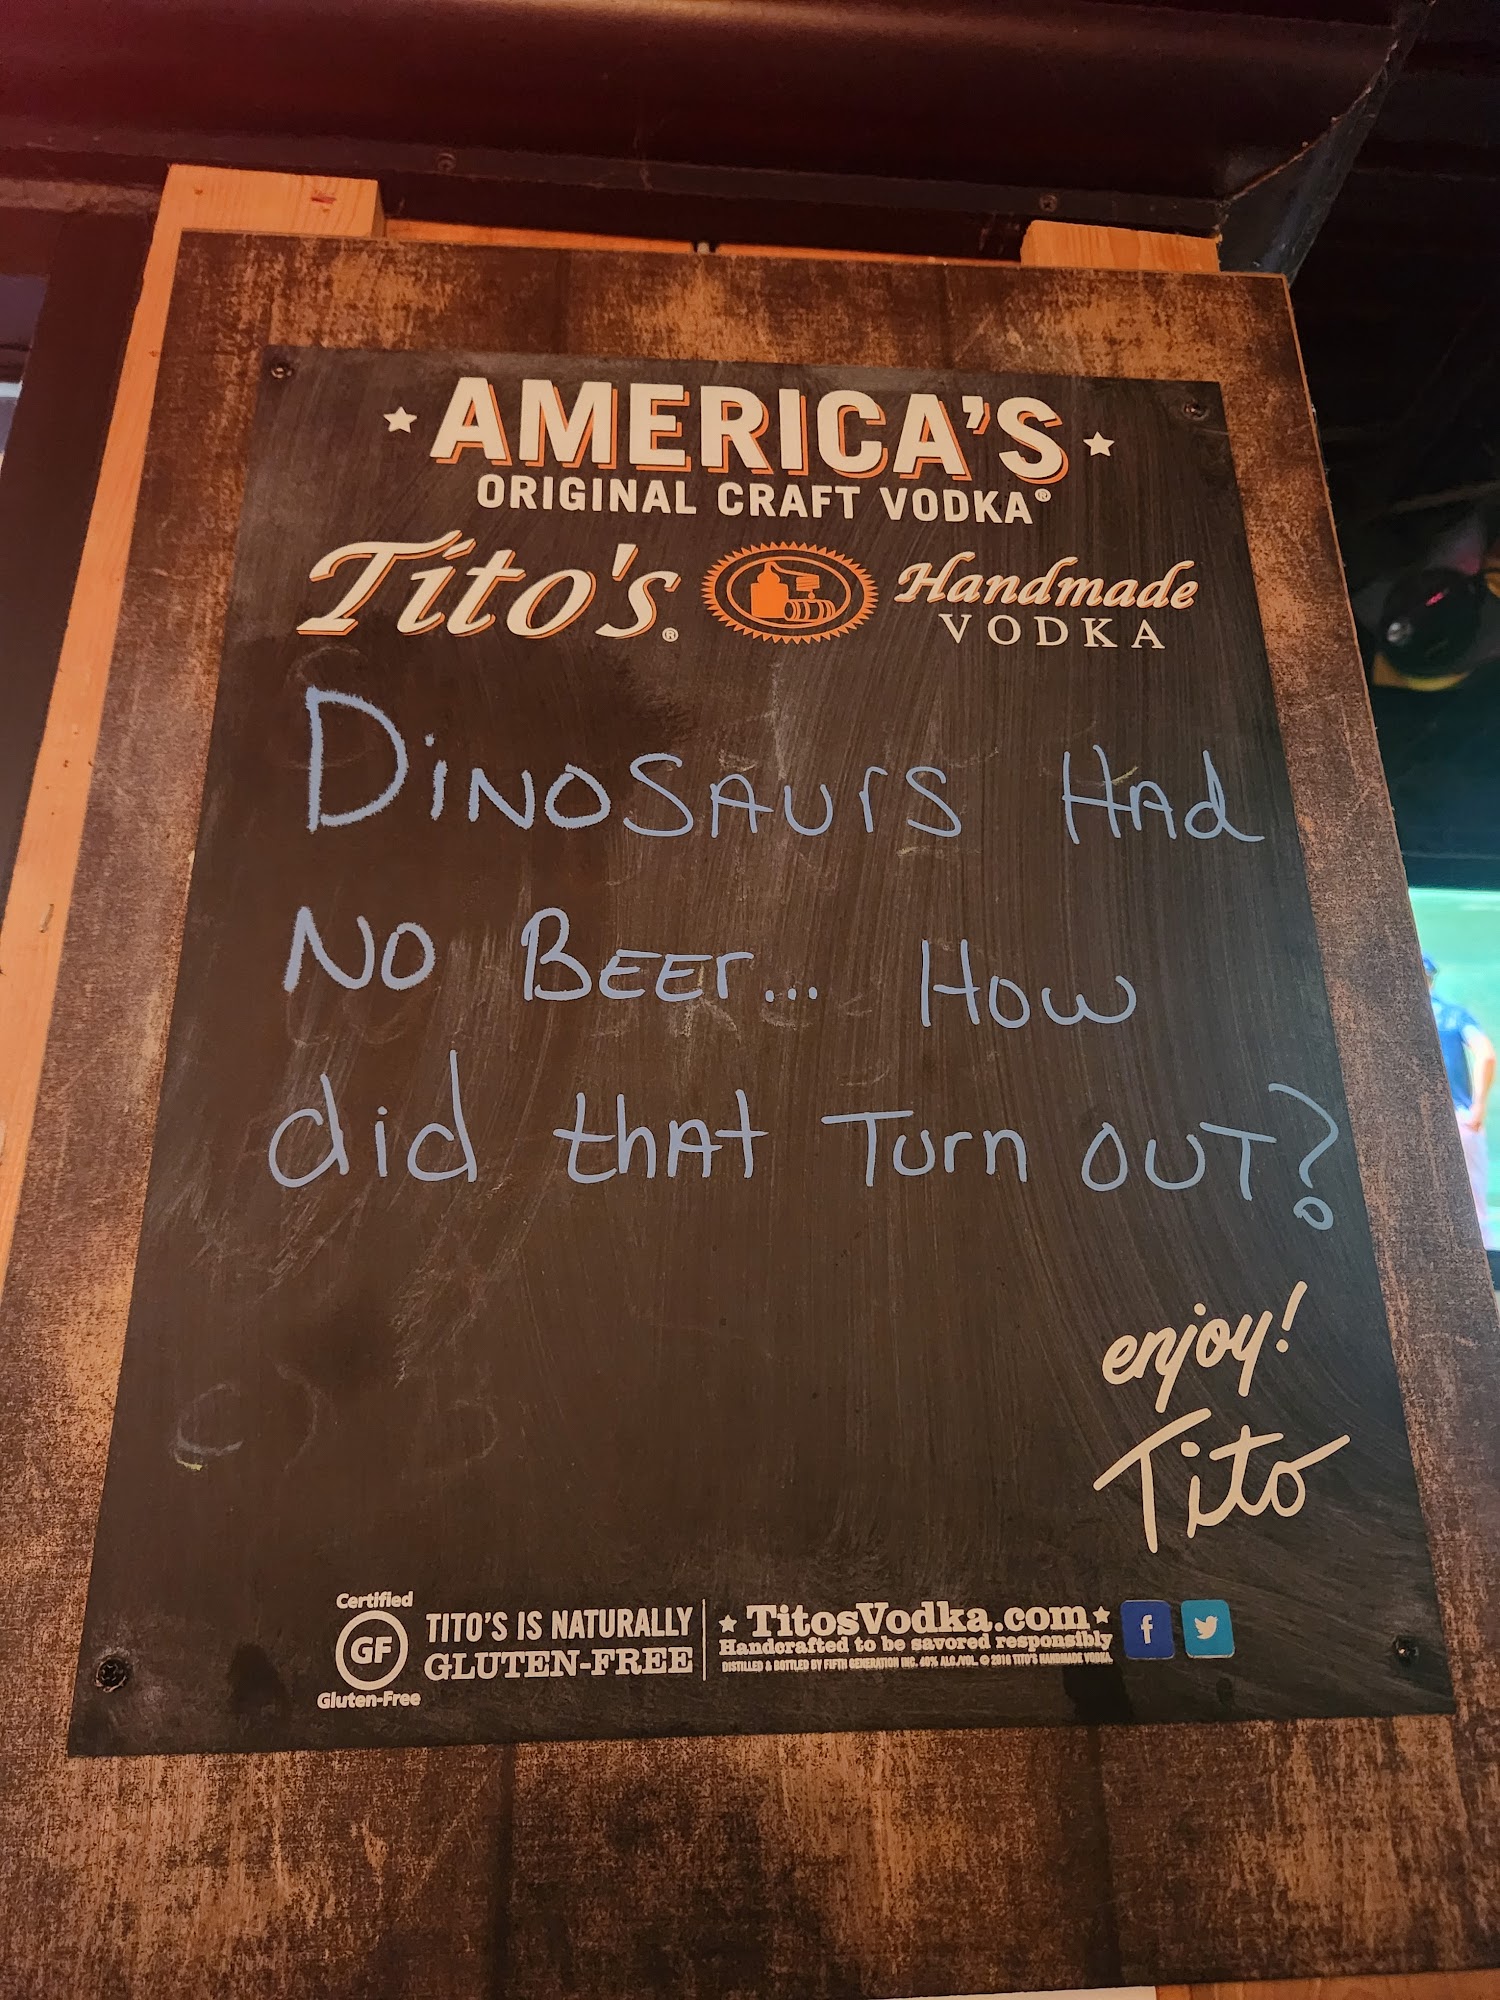 AMERICA'S
ORIGINAL CRAFT VODKA®
Tito's® Handmade
VODKA
DiNOSAUrS HAd
NO BEEr... HOW
did thAt Turn OUT?
enjoy!
Tito
Certified
GF
Gluten-Free
TITO'S IS NATURALLY
GLUTEN-FREE
TitosVodka.com
Handcrafted to be savored responsibly
DISTILLED & BOTTLED BY FIFTH GENERATION INC. 40% ALC./VOL. © 2018 TITO'S HANDMADE VODKA.
f